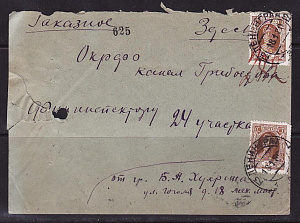 Заказное Здесь
625
Окрфо
канал Грибоедова
Фининспектору 24 участка
от гр. Б. А.
ул. Гоголя д. 18